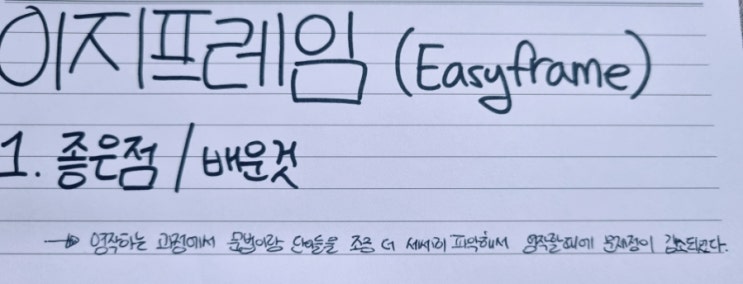 이지프레임 (Easyframe)
1. 좋은점 / 배운것
→ 영작하는 과정에서 문법이랑 단어들을 조금 더 세세히 파악해서 영작할때에 문제점이 감소되었다.